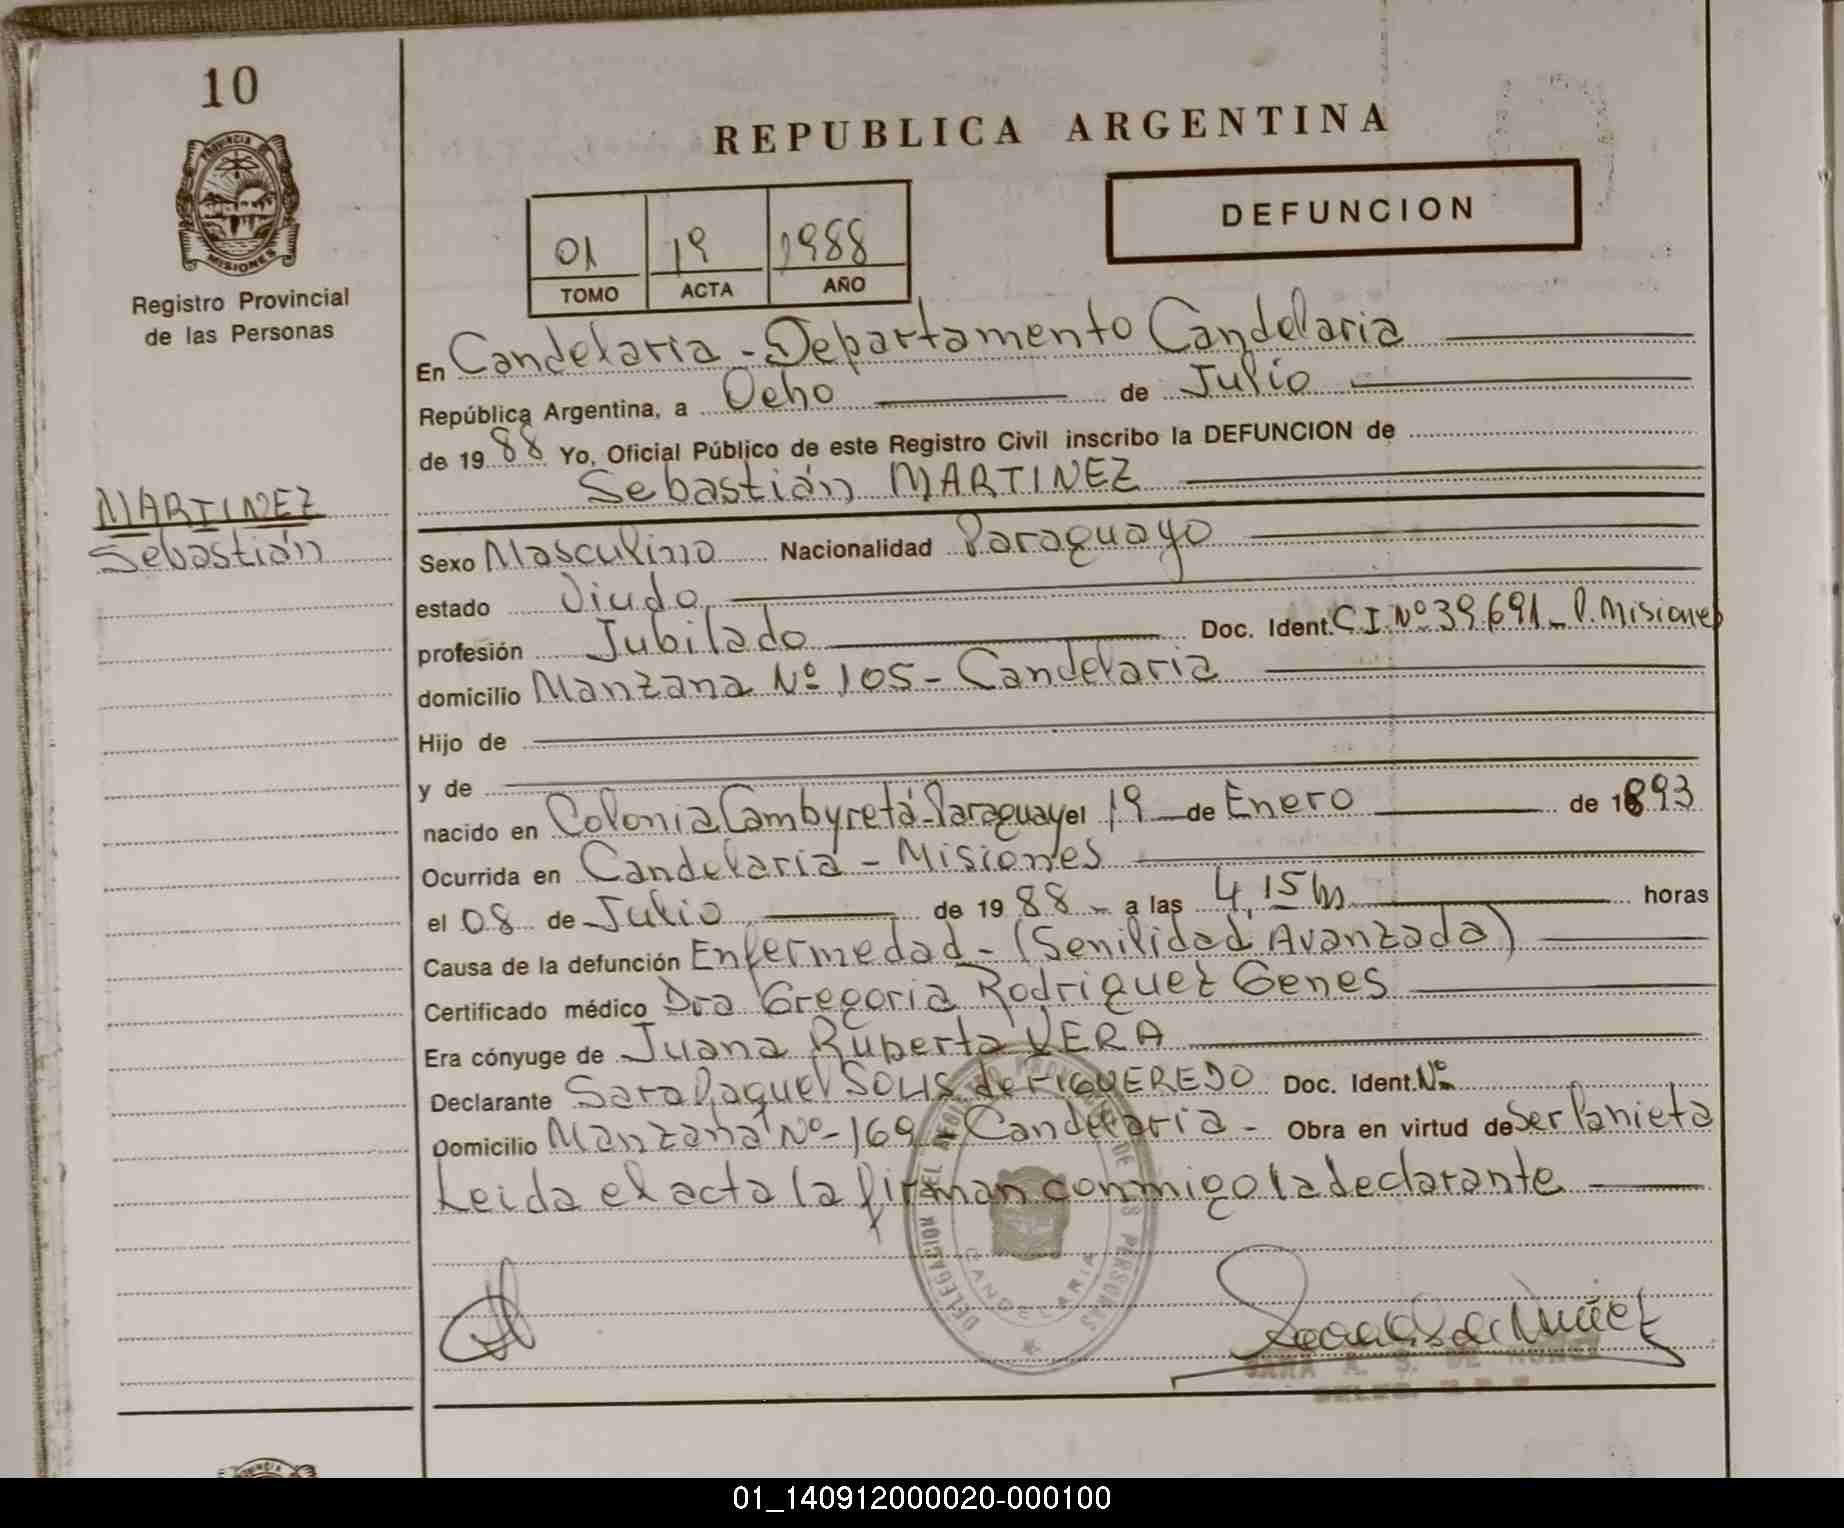 10
PROVINCIA DE
MISIONES
Registro Provincial
de las Personas
REPUBLICA ARGENTINA
DEFUNCION
01 19 1988
TOMO ACTA AÑO
En Candelaria - Departamento Candelaria
República Argentina, a Ocho de Julio
de 1988 Yo, Oficial Público de este Registro Civil inscribo la DEFUNCION de
Sebastián MARTINEZ
MARTINEZ
Sebastián
Sexo Masculino Nacionalidad Paraguayo
estado Viudo
profesión Jubilado Doc. Ident. C I Nº 39.691 - P. Misiones
domicilio Manzana Nº 105 - Candelaria
Hijo de
y de
nacido en Colonia Cambyretá-Paraguay el 19 de Enero de 1893
Ocurrida en Candelaria - Misiones
el 08 de Julio de 1988 - a las 4,15 hs horas
Causa de la defunción Enfermedad - (Senilidad Avanzada)
Certificado médico Dra Gregoria Rodriguez Genes
Era cónyuge de Juana Ruperta VERA
Declarante Sara Raquel SOLIS de FIGUEREDO Doc. Ident. Nº
Domicilio Manzana Nº-169 - Candelaria - Obra en virtud de Ser la nieta
Leida el acta la firman conmigo la declarante
DELEGACION DEL REGISTRO PROVINCIAL DE LAS PERSONAS
CANDELARIA
SARA R. S. DE NUÑEZ
01_140912000020-000100